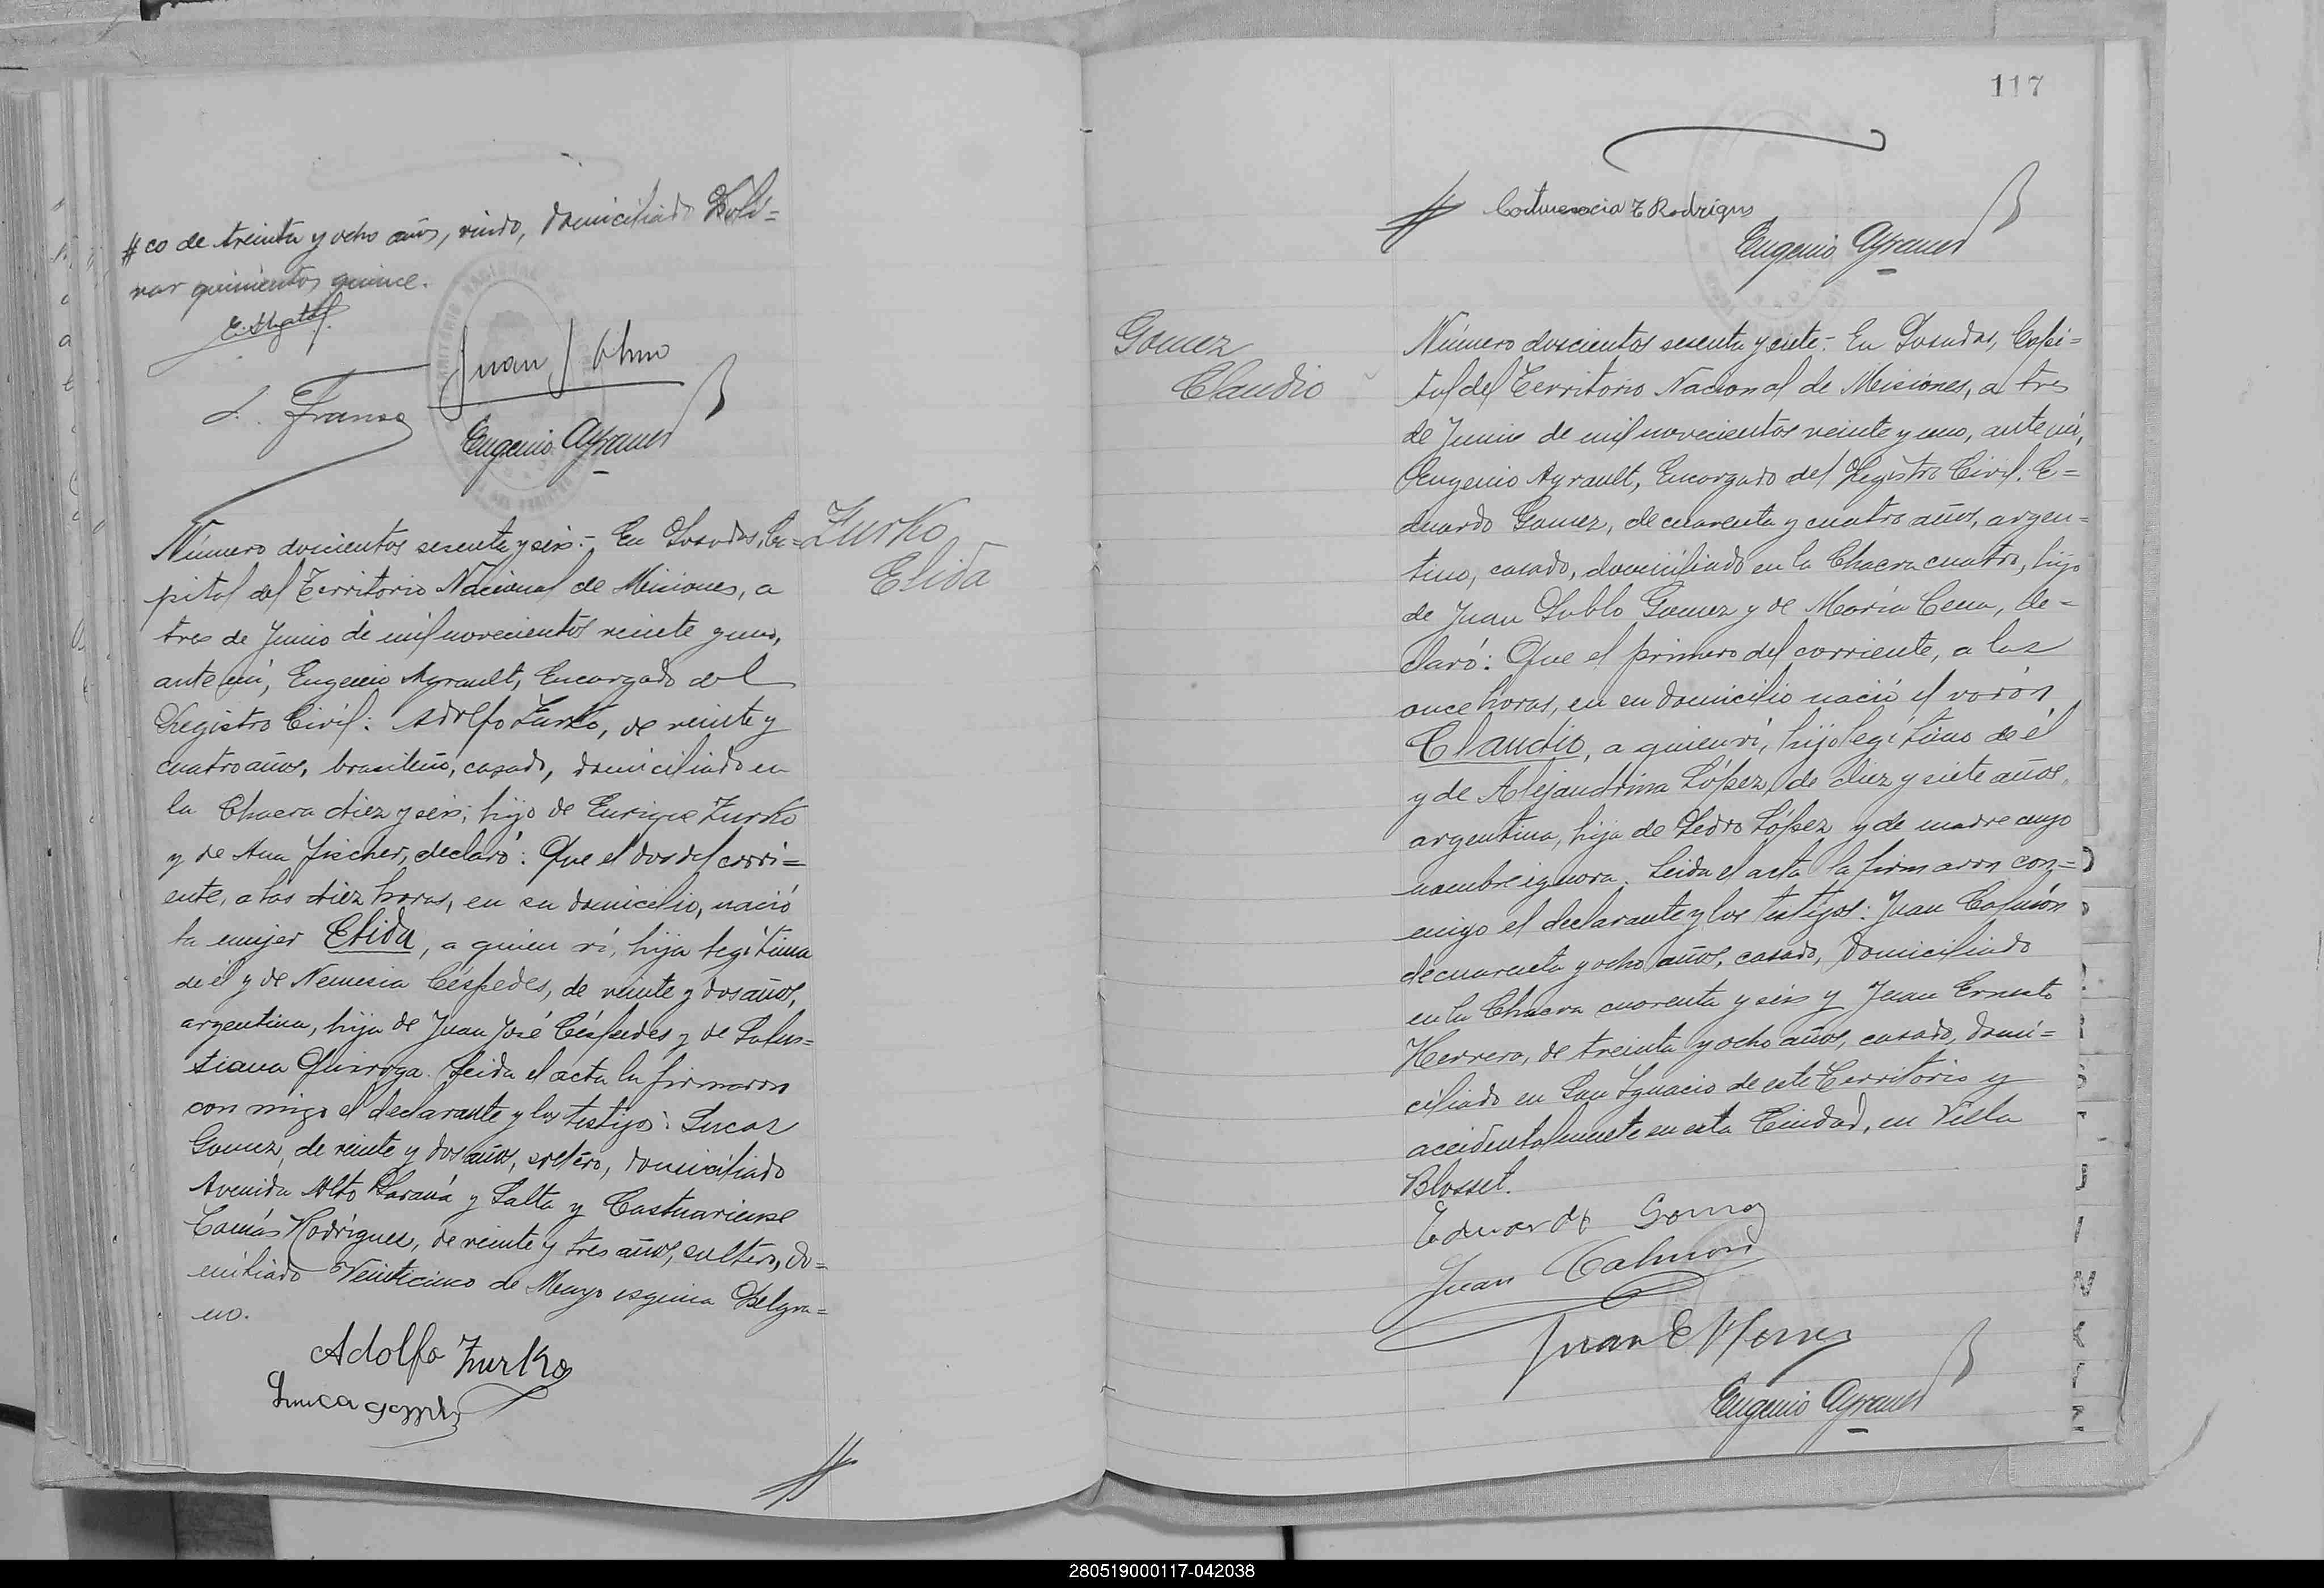 #co de treinta y ocho años, viudo, domiciliado Bolí=
var quinientos quince.
Juan J
Eugenio Ayrault
Zurko
Elida
Número doscientos sesenta y seis.- En Posadas, Ca=
pital del Territorio Nacional de Misiones, a
tres de Junio de mil novecientos veinte y uno,
ante mí, Eugenio Ayrault, Encargado del
Registro Civil: Adolfo Zurko, de veinte y
cuatro años, brasileño, casado, domiciliado en
la Chacra diez y seis, hijo de Enrique Zurko
y de Ana Fischer, declaró: Que el dos del corri=
ente, a las diez horas, en su domicilio, nació
la mujer Elida, a quien ví, hija legítima
de él y de Nemesia Céspedes, de veinte y dos años,
argentina, hija de Juan José Céspedes y de Salus=
tiana Quiroga. Leida el acta la firmaron
con migo el declarante y los testigos: Lucas
Gomez, de veinte y dos años, soltero, domiciliado
Avenida Alto Paraná y Salta y
Tomás Rodríguez, de veinte y tres años, soltero, do=
miciliado Veinticinco de Mayo esquina Belgra=
no.
Adolfo Zurko
Luca gomez
#
117
# T Rodrigus
Eugenio Ayrault
Gomez
Claudio
Número doscientos sesenta y siete.- En Posadas, Capi=
tal del Territorio Nacional de Misiones, a tres
de Junio de mil novecientos veinte y uno, ante mí,
Eugenio Ayrault, Encargado del Registro Civil: E=
duardo Gomez, de cuarenta y cuatro años, argen=
tino, casado, domiciliado en la Chacra cuatro, hijo
de Juan Pablo Gomez y de María Cena, de=
claró: Que el primero del corriente, a las
once horas, en su domicilio nació el varón
Claudio, a quien ví, hijo legítimo de él
y de Alejandrina López, de diez y siete años,
argentina, hija de Pedro López y de madre cuyo
nombre ignora. Leida el acta la firmaron con=
migo el declarante y los testigos: Juan Calmón
de cuarenta y ocho años, casado, domiciliado
en la Chacra cuarenta y seis y Juan Ernesto
Herrera, de treinta y ocho años, casado, domi=
ciliado en San Ignacio de este Territorio y
accidentalmente en esta Ciudad, en Villa
Blosset.
Eduardo Gomez
Juan Calmon
Juan E Herrera
Eugenio Ayrault
280519000117-042038